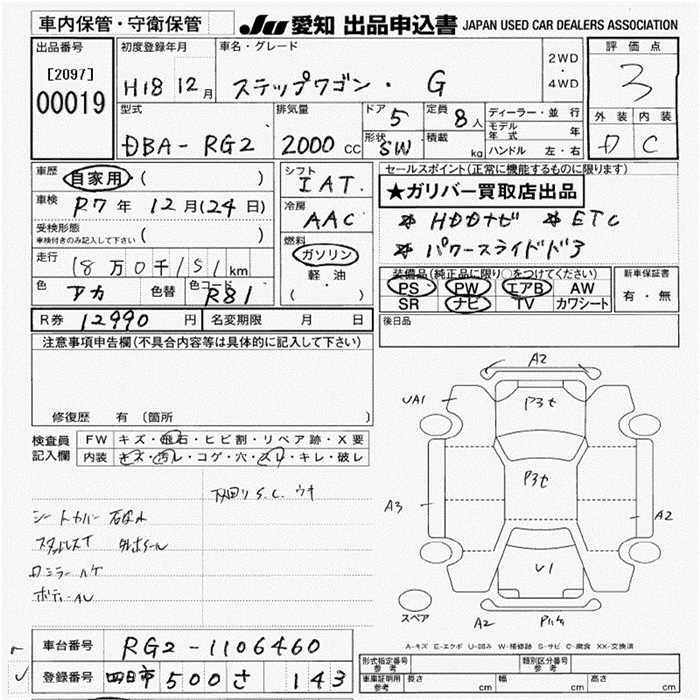 車内保管・守衛保管 JU 愛知 出品申込書 JAPAN USED CAR DEALERS ASSOCIATION
出品番号 初度登録年月 車名・グレード 2WD・4WD 評価点
[2097] H18 12月 ステップワゴン・ G 3
00019 型式 排気量 ドア 5 定員 8人 ディーラー・並行 外装 内装
DBA-RG2 2000cc 形状 SW 積載 kg モデル年式 年 D C
ハンドル 左・右
車歴 自家用 ( ) シフト IAT セールスポイント(正常に機能するものに限ります)
車検 R7年 12月(24日) 冷房 AAC ★ガリバー買取店出品
受検形態 ( ) ※ HDDナビ ※ ETC
車検付きのみ記入して下さい 燃料 ガソリン ※ パワースライドドア
走行 18万0千151km 軽油 装備品(純正品に限り○をつけてください) 新車保証書
色 アカ 色替 色コード R81 ( ) PS PW エアB AW 有・無
SR ナビ TV カワシート
R券 12990円 名変期限 月 日 後日品
注意事項申告欄(不具合内容等は具体的に記入して下さい)
A2
UA1 P3t
修復歴 有 (箇所
検査員記入欄 FW キズ・飛石・ヒビ割・リペア跡・X要
内装 キズ・汚レ・コゲ・穴・スレ・キレ・破レ
P3t
S.C. ウキ
シートカバー
A3 A2
スタッドレスT
ミラー
ボディーAU
U1
スペア A2
A-キズ E-エクボ U-凹み W-補修跡 S-サビ C-腐食 XX-交換済
車台番号 RG2-1106460 形式指定番号 参考 類別区分番号 参考
登録番号 四日市 500 さ 143 車庫証明用 参考 長さ cm 幅 cm 高さ cm